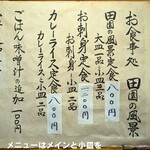 お食事処 田園の風景
田園の風景定食 八〇〇円
大皿一品 小皿三品
お刺身定食 一二〇〇円
お刺身 小皿三品
カレーライス定食 八〇〇円
カレーライス 小皿二品
ごはん 味噌汁の追加 一〇〇円
メニューはメインと小皿を